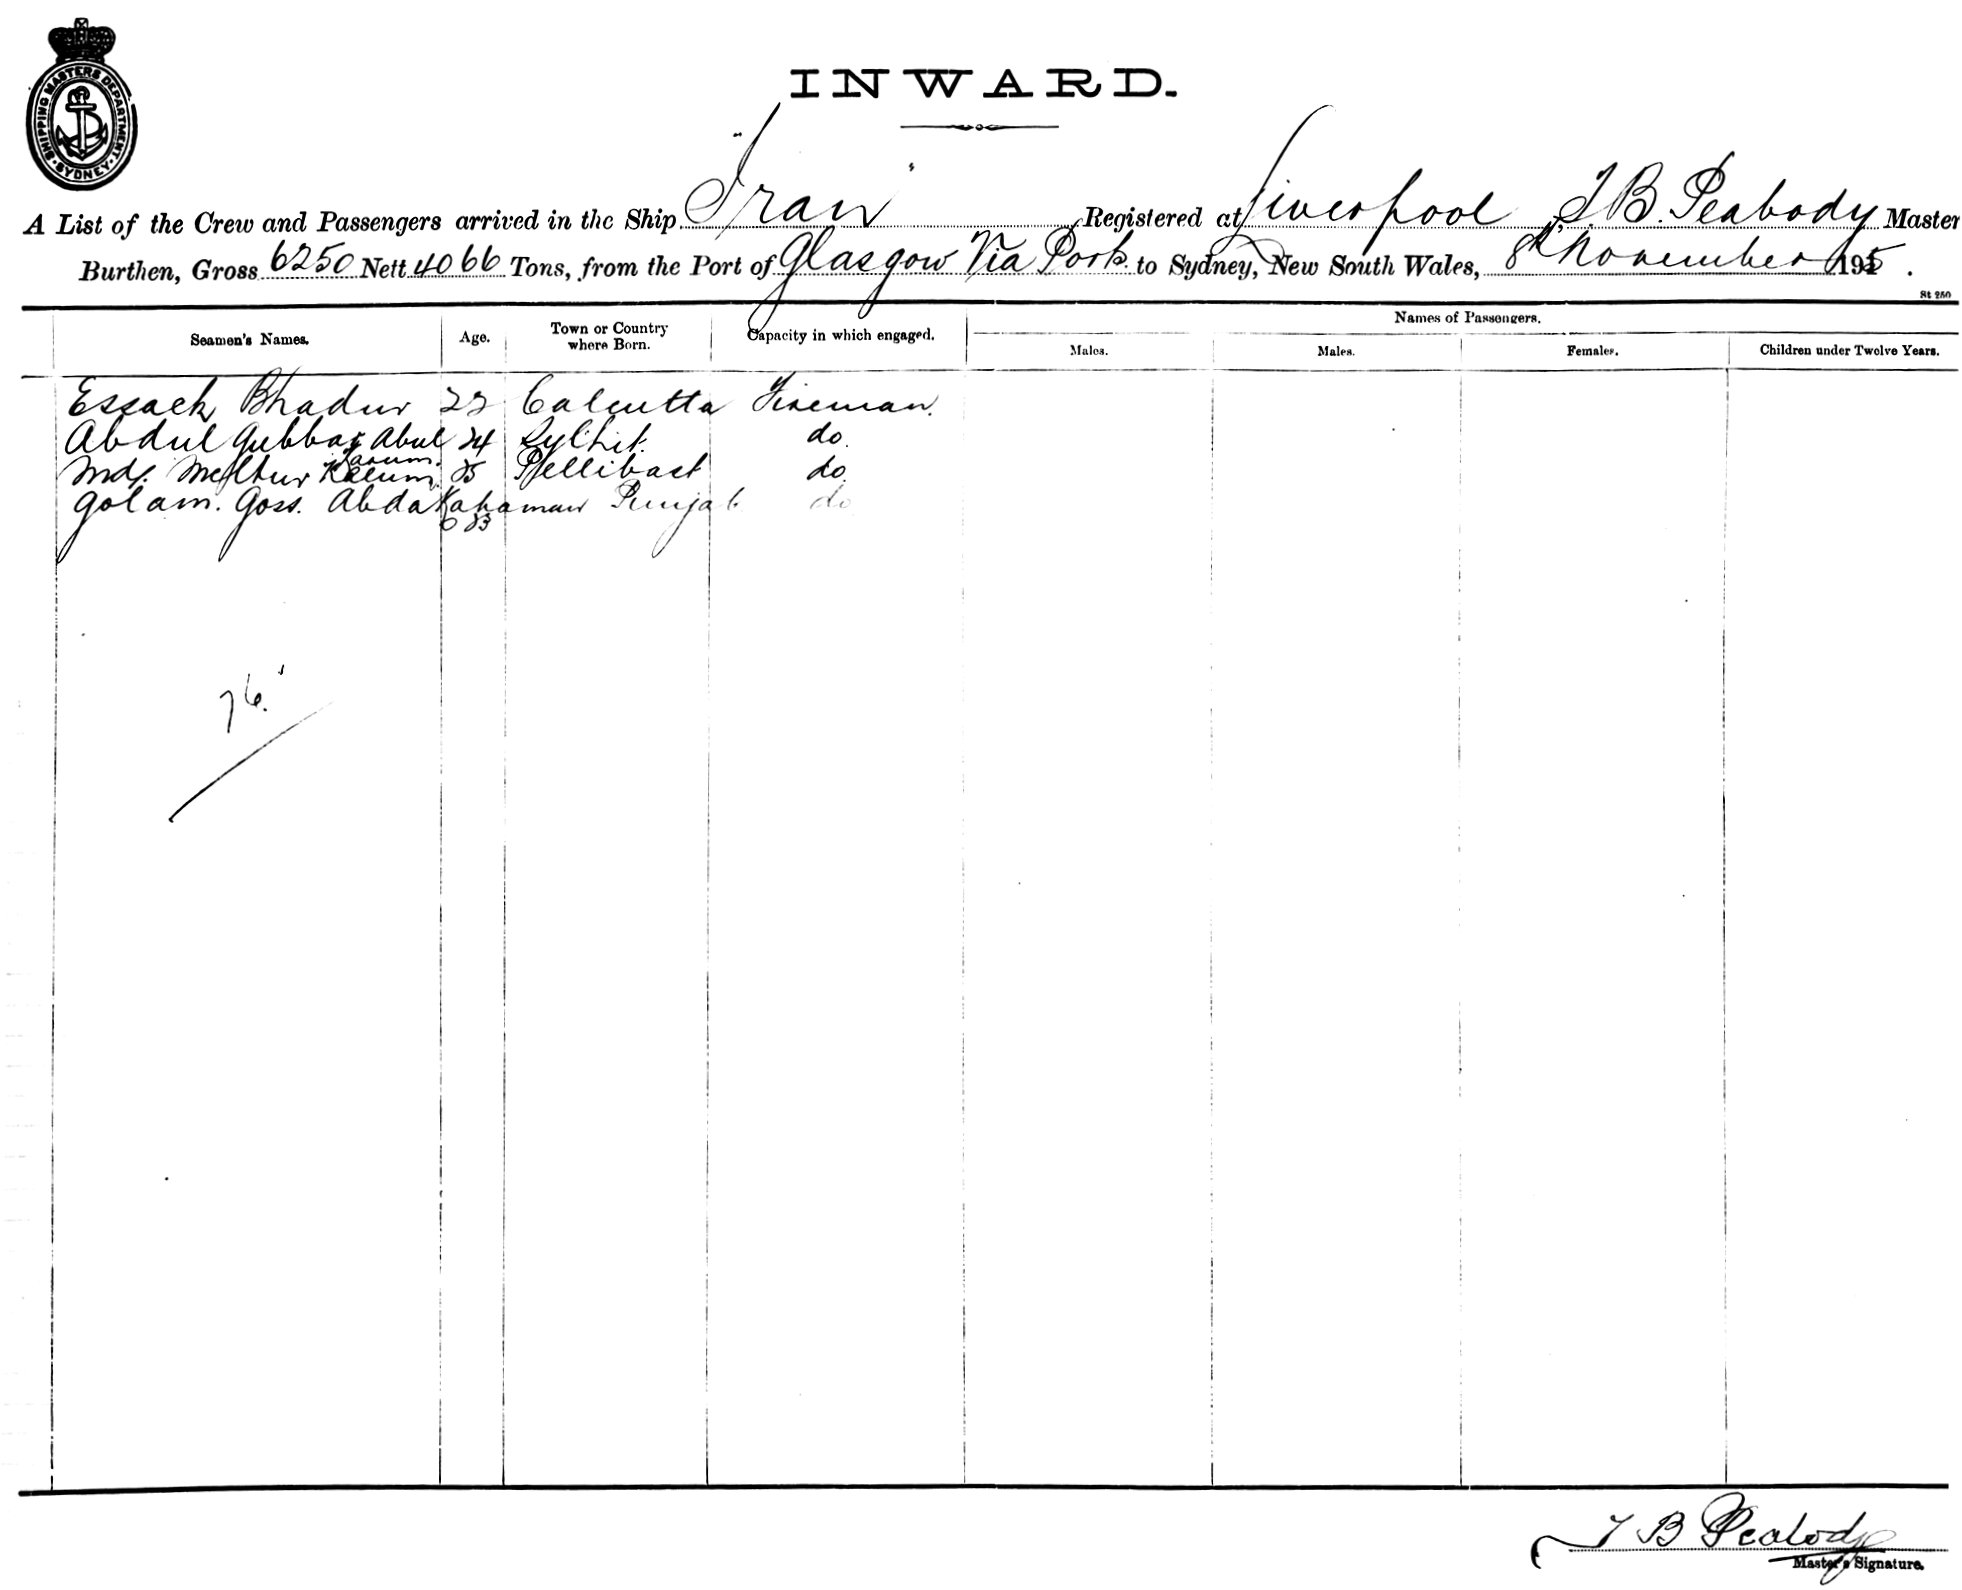 SHIPPING MASTERS DEPARTMENT · SYDNEY ·
INWARD.
A List of the Crew and Passengers arrived in the Ship "Iran" Registered at Liverpool, T. B. Peabody Master
Burthen, Gross 6250 Nett 4066 Tons, from the Port of Glasgow Via Ports to Sydney, New South Wales, 8th November 1915.
St 250
Seamen's Names. Age. Town or Country where Born. Capacity in which engaged. Names of Passengers.
Males. Males. Females. Children under Twelve Years.
Essack Bhadur 22 Calcutta Fireman.
Abdul Gubbar Abul 24 Sylhit. do.
Karum.
Mds. 25 do.
Golam. Goss. Abda Rahaman Punjab do
33
76.
T B Peabody
Master's Signature.